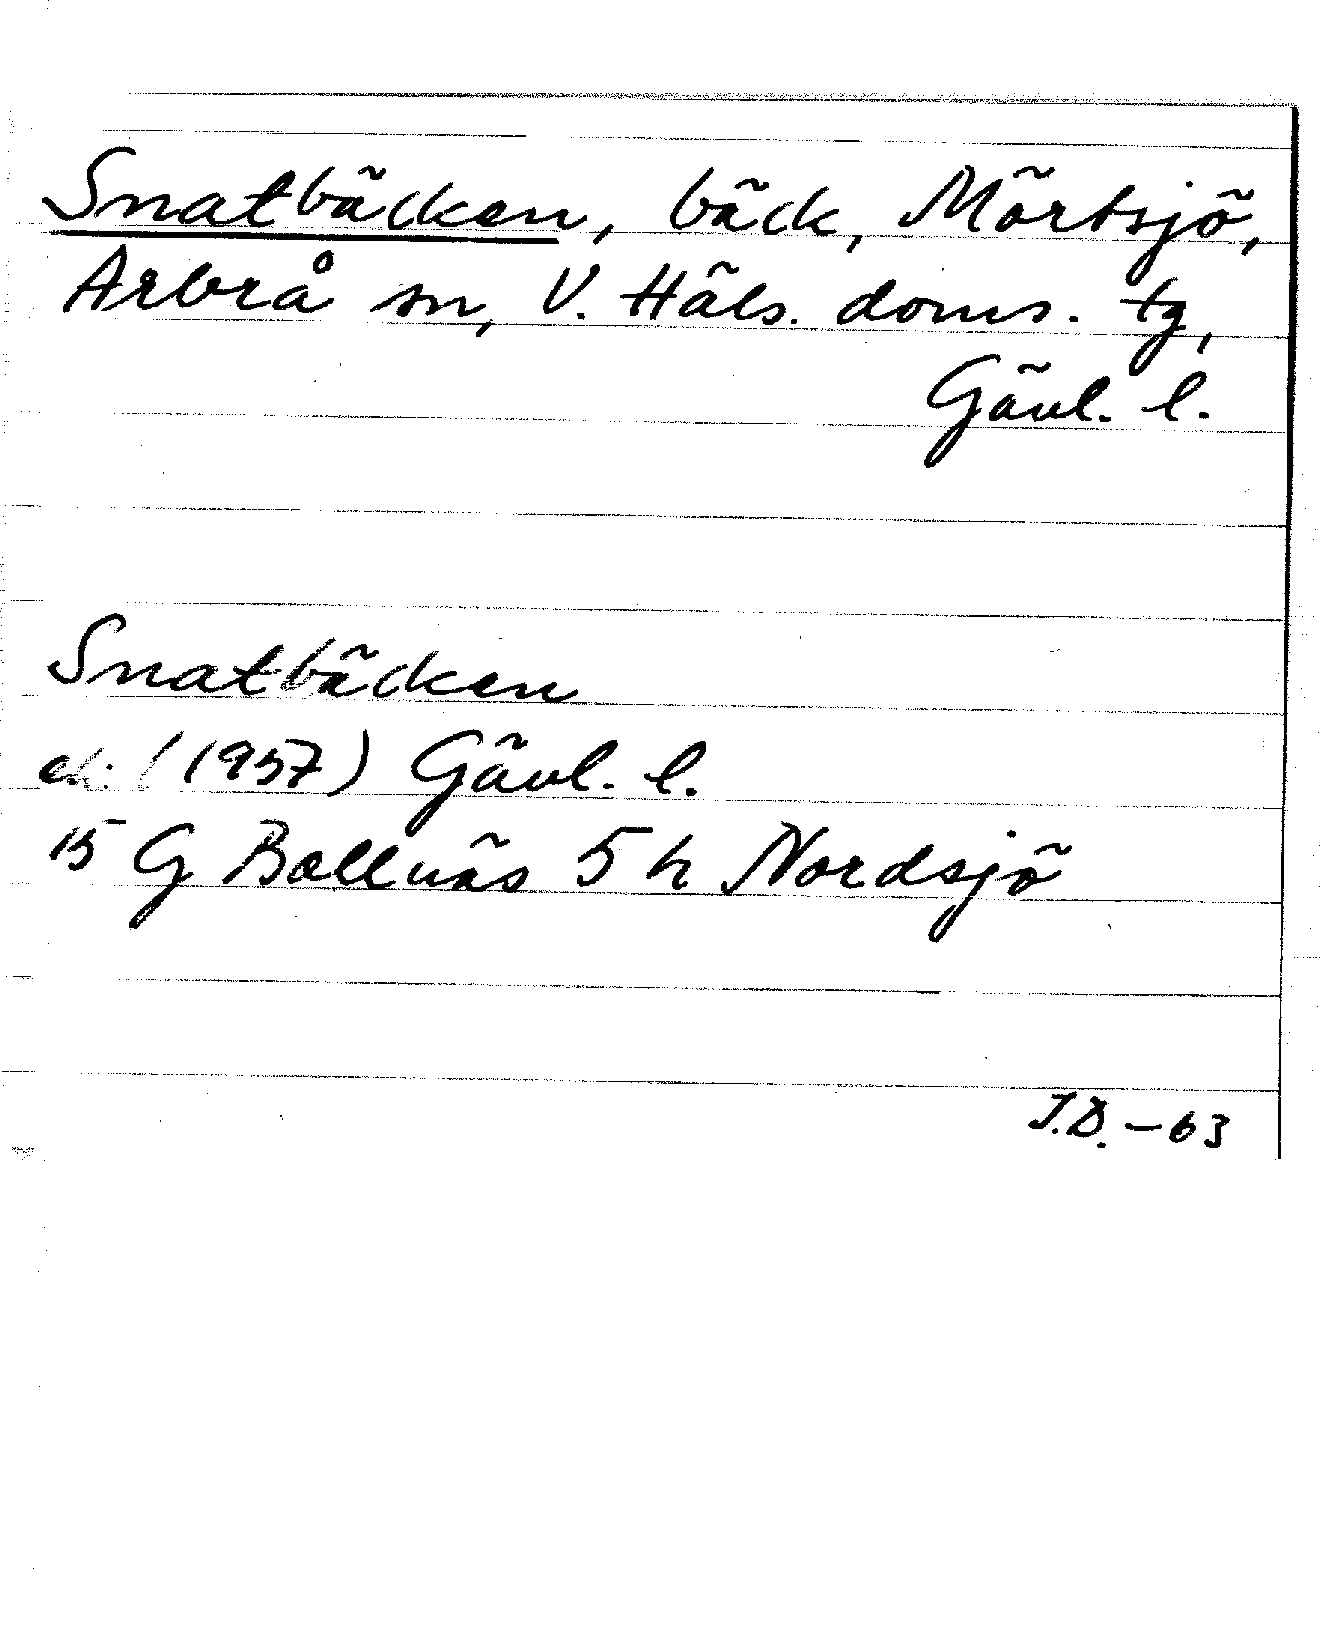 Snatbäcken, bäck, Mörtsjö,
Arbrå sn, V. Häls. doms. tg,
Gävl. l.
Snatbäcken
ek. (1957) Gävl. l.
15 G Bollnäs 5 h Nordsjö
J.D. - 63